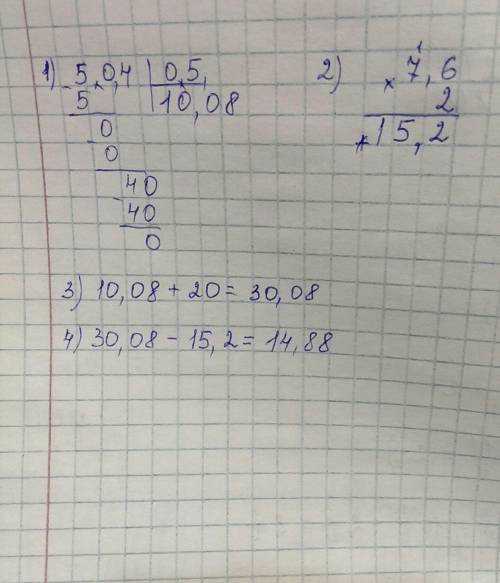 1) 5,0,4 | 0,5,
- 5 | 10,08
0
- 0
40
- 40
0
2) 1
× 7,6
2
15,2
3) 10,08 + 20 = 30,08
4) 30,08 - 15,2 = 14,88